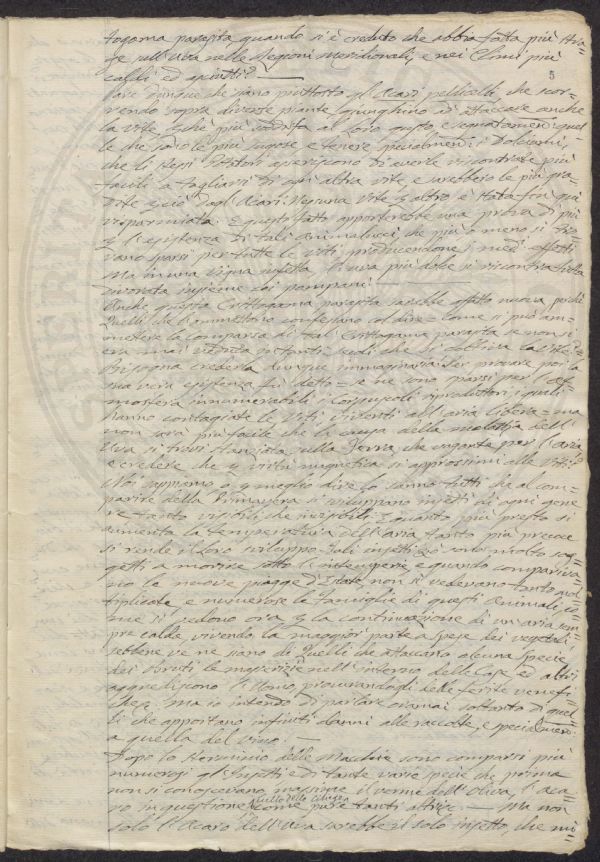 togama parasita, quando si è creduto che abbia fatta più stra=
ge sull'uva nelle Regioni meridionali, e nei Climi più
caldi ed asciutti?
5
Pare dunque che siano piuttosto gl'Acari pellicelli, che scor=
rendo sopra diverse piante giunghino ad attaccare anche
la Vite che più soddisfa al loro gusto, e segnatamente quel=
le che sono le più sugose, e tenere specialmente i Dolciumi,
che li stessi asseriscono di averle riscontrate più
facili a tagliarsi di ogni altra vite, e sarebbero le più gra=
dite a più dagl'Acari. Nessuna Vite è stata fra qui
risparmiata. E questo fatto apporterebbe una prova di più
l'esistenza di tali Animalucci, che più o meno si tro=
vano sparsi per tutte le Viti producendone i medi effetti.
Ma in una vigna infetta, l'uva più dolce si riscontra tutta
divorata insieme coi pampani.
Anche questa Crittogama parasita sarebbe affatto nuova, poiché
quelli che l'ammettono confessano col dire = Come si può am=
mettere la comparsa di tal Crittogama parasita se non si
era mai veduta in tanti secoli che si coltiva la Vite?
Bisogna crederla dunque immaginaria. Per provare poi la
sua vera esistenza fu detto = se ne sono sparsi per l'at=
mosfera innumerabili Corpuscoli riproduttori, i quali
hanno contagiate le Viti viventi all'aria libera = ma
non sarà più facile che la causa della malattia dell'
Uva si trovi stanziata sulla Terra, che vagante per l'aria
e credere che virtù magnetica si approssimi alle Viti?
Noi sappiamo o meglio dire lo sanno tutti che al com=
parire della Primavera si sviluppano insetti di ogni gene=
re tanto visibili che invisibili. E quanto più presto si
aumenta la temperatura dell'aria tanto più precoce
si rende il loro sviluppo. Tali insetti sono molto sog=
getti a morire sotto l'intemperie, e quando compariva=
no le nuove piogge d'Estate non si vedevano tanto mol=
tiplicate, e numerose le famiglie di questi Animali, co=
me si vedono ora la continuazione di un'aria sem=
pre calda, vivendo la maggior parte a spese dei vegetali
sebbene ve ne siano di quelli che attaccano alcuna specie
dei bruti, le nell'interno delle Case, ed altri
aggrediscono l'Uomo, procurandogli delle ferite venefi=
che. Ma io intendo di parlare oramai soltanto di quel=
li che apportano infiniti danni alle raccolte, e specialmente
a quella del vino.
Dopo lo sterminio delle Macchie sono comparsi più
numerosi gl'Insetti, e di tante varie specie che prima
non si conoscevano, massime il verme dell'Oliva, l'Aca=
ro in questione, come pure tanti altri. Ma non
solo l'Acaro dell'Uva sarebbe il solo insetto, che mi=